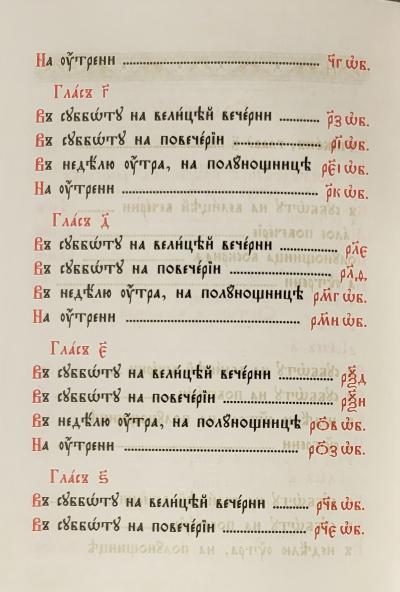 На ᲂу҆́трени ... ч҃г ѡ҆б.
Гла́съ г҃
Въ сꙋббѡ́тꙋ на вели́цѣй вече́рни ... р҃з ѡ҆б.
Въ сꙋббѡ́тꙋ на повече́рїи ... р҃і ѡ҆б.
Въ недѣ́лю ᲂу҆́тра, на полꙋно́щницѣ рє҃і ѡ҆б.
На ᲂу҆́трени ... р҃к ѡ҆б.
Гла́съ д҃
Въ сꙋббѡ́тꙋ на вели́цѣй вече́рни ... рл҃є
Въ сꙋббѡ́тꙋ на повече́рїи ... рл҃ѳ
Въ недѣ́лю ᲂу҆́тра, на полꙋно́щницѣ рм҃г ѡ҆б.
На ᲂу҆́трени ... рм҃и ѡ҆б.
Гла́съ є҃
Въ сꙋббѡ́тꙋ на вели́цѣй вече́рни ... рѯ҃д
Въ сꙋббѡ́тꙋ на повече́рїи ... рѯ҃и
Въ недѣ́лю ᲂу҆́тра, на полꙋно́щницѣ ро҃в ѡ҆б.
На ᲂу҆́трени ... ро҃з ѡ҆б.
Гла́съ ѕ҃
Въ сꙋббѡ́тꙋ на вели́цѣй вече́рни ... рч҃в ѡ҆б.
Въ сꙋббѡ́тꙋ на повече́рїи ... рч҃є ѡ҆б.